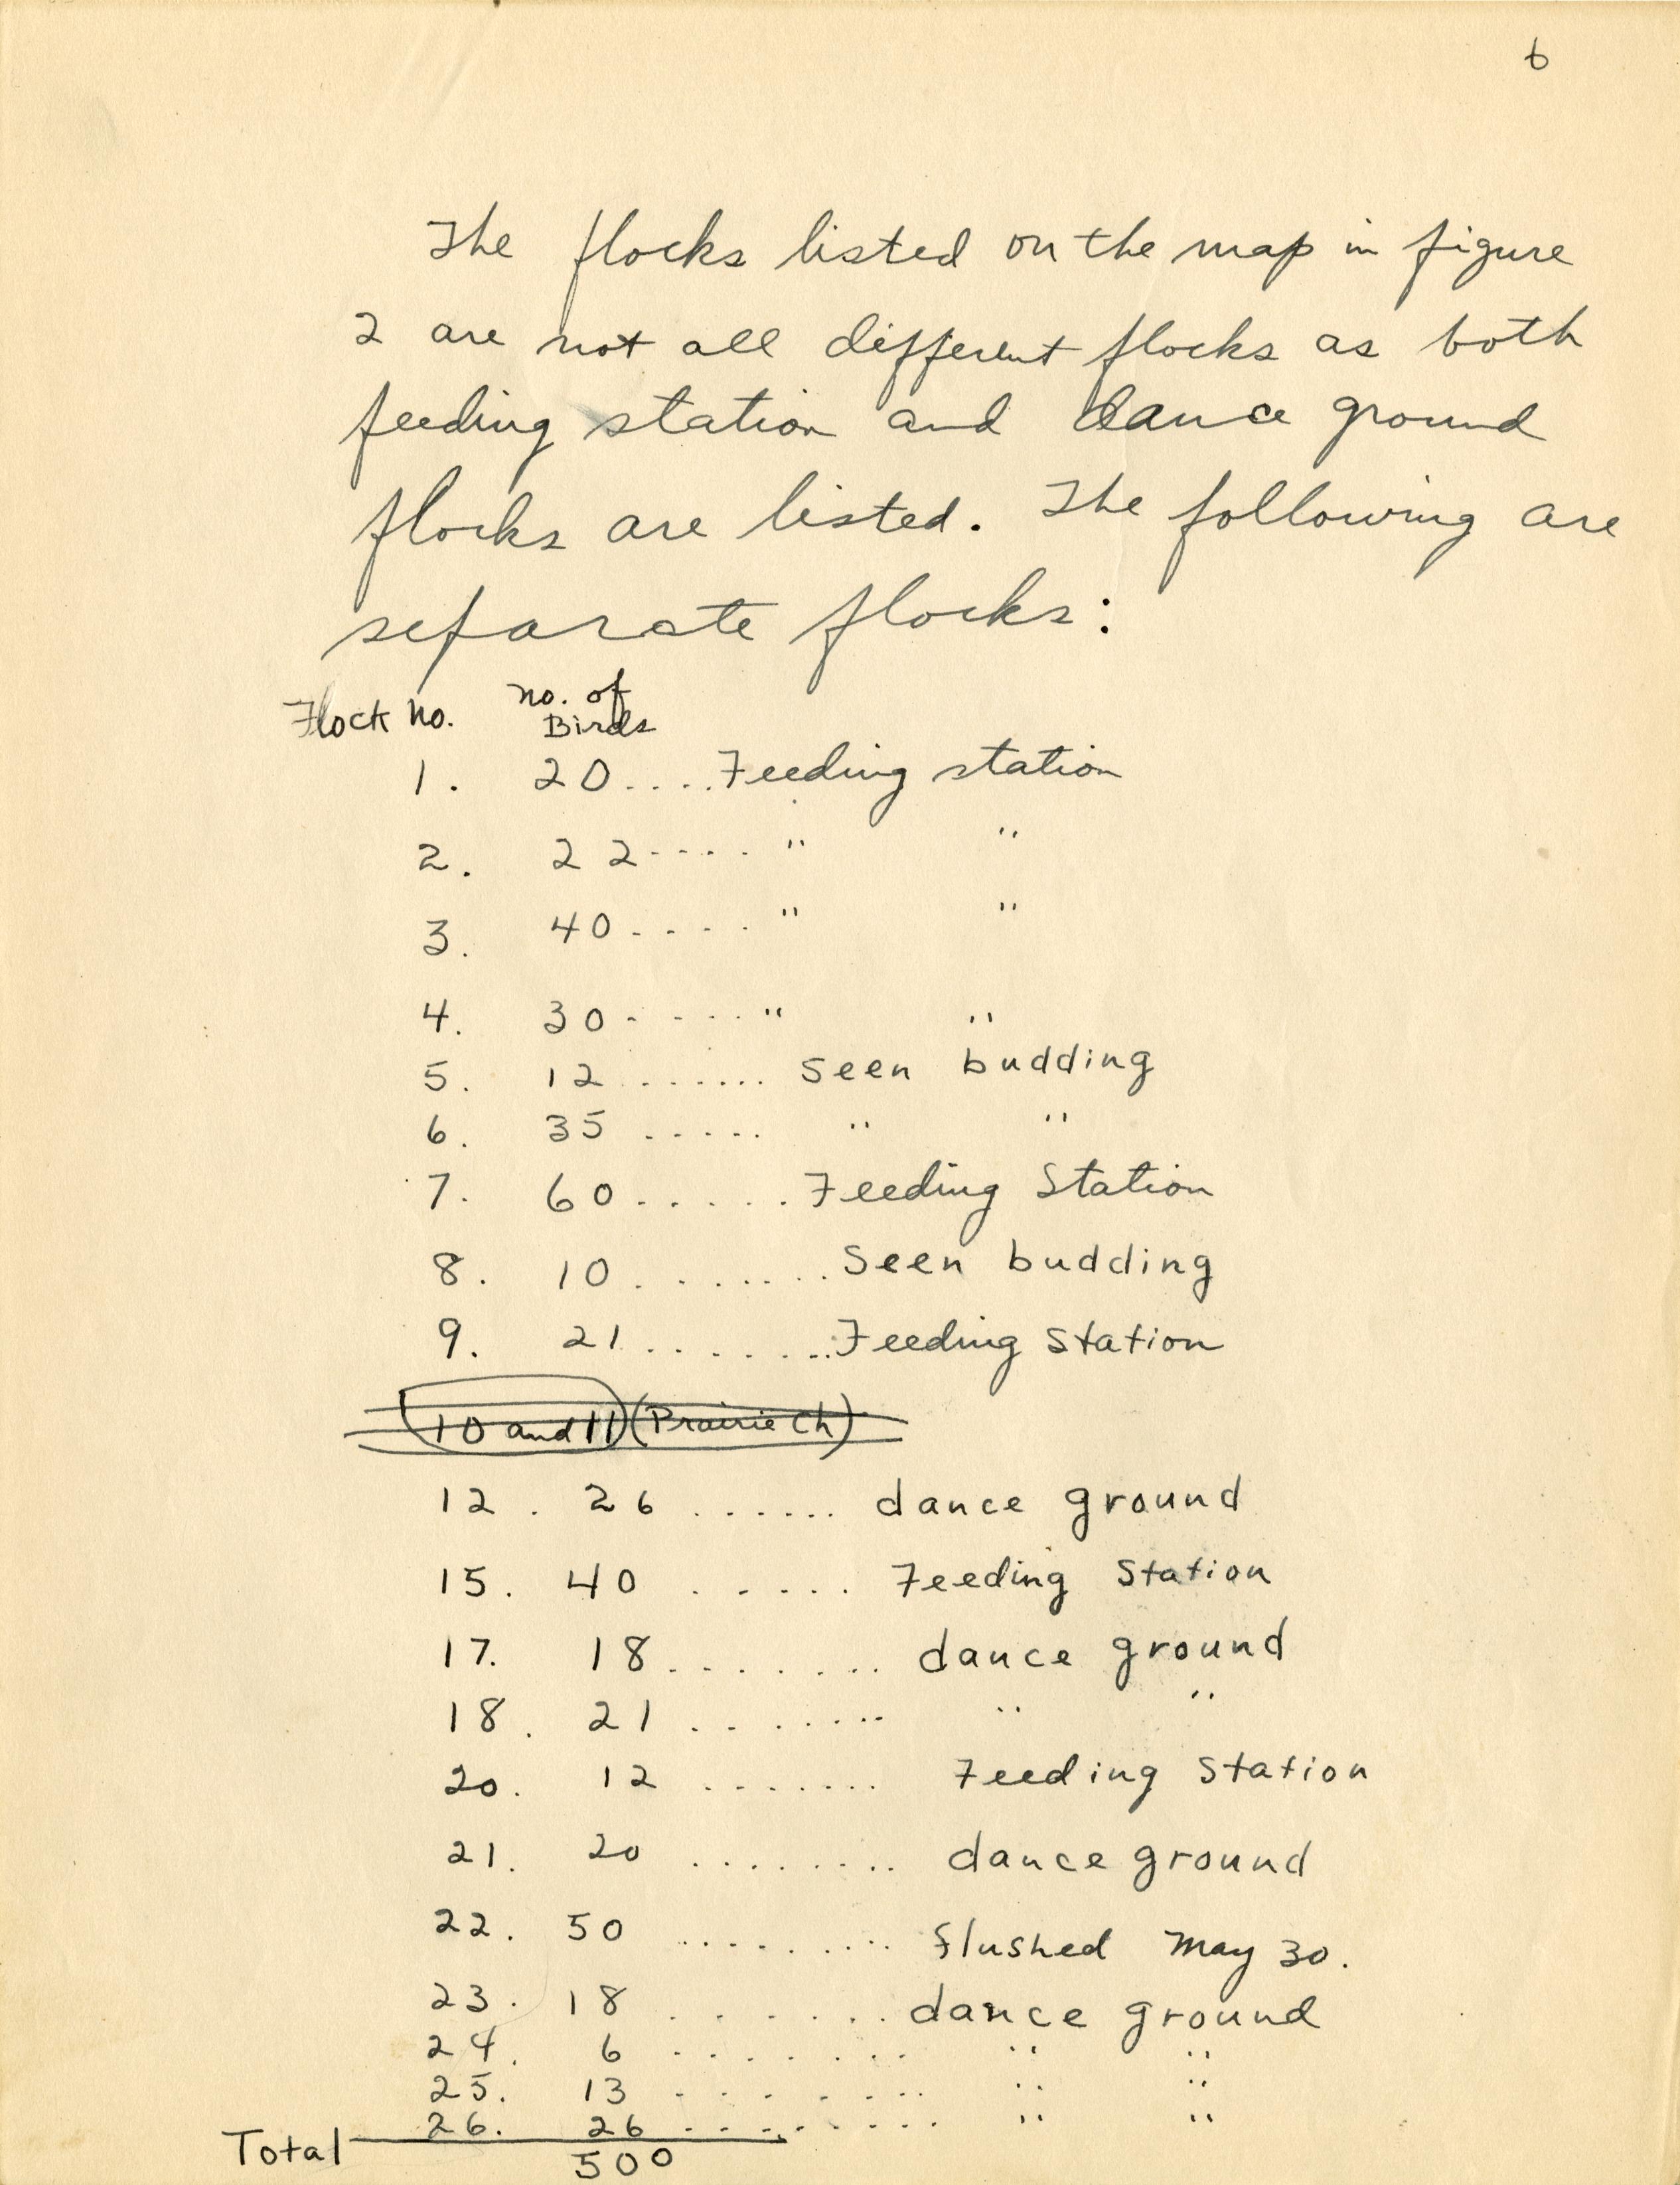 6
The flocks listed on the map in figure
2 are not all different flocks as both
feeding station and dance ground
flocks are listed. The following are
separate flocks:
Flock no. no. of Birds
1. 20....Feeding station
2. 22---- " "
3. 40---- " "
4. 30----- " "
5. 12....... Seen budding
6. 35 ..... " "
7. 60...... Feeding Station
8. 10....... Seen budding
9. 21....... Feeding Station
10 and 11 (Prairie Ch)
12. 26 ...... dance ground
15. 40 ..... Feeding Station
17. 18........ dance ground
18. 21 ....... " "
20. 12 ....... Feeding Station
21. 20 ........ dance ground
22. 50 ......... flushed May 30.
23. 18 ...... dance ground
24. 6 ........ " "
25. 13 ........ " "
26. 26 ......... " "
Total 500